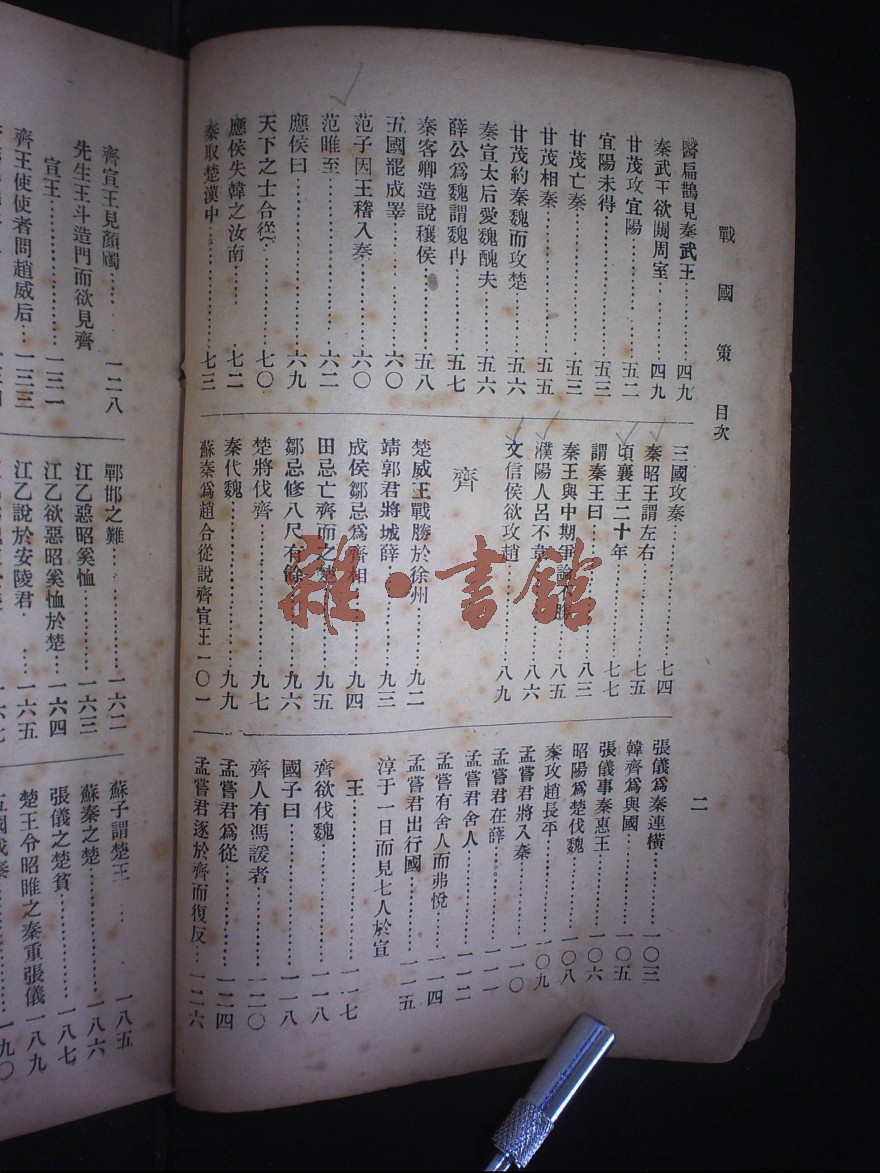 戰國策 目次
二
醫扁鵲見秦武王……四九
秦武王欲闚周室……四九
甘茂攻宜陽……五二
宜陽未得……五三
甘茂亡秦……五三
甘茂相秦……五五
甘茂約秦魏而攻楚……五六
秦宣太后愛魏醜夫……五六
薛公爲魏謂魏冉……五七
秦客卿造說穰侯……五八
五國罷成睪……六〇
范子因王稽入秦……六〇
范睢至……六二
應侯曰……六九
天下之士合從……七〇
應侯失韓之汝南……七二
秦取楚漢中……七三
三國攻秦……七四
秦昭王謂左右……七五
頃襄王二十年……七七
謂秦王曰……八三
秦王與中期爭論不勝……八五
濮陽人呂不韋……八六
文信侯欲攻趙……八九
齊
楚威王戰勝於徐州……九二
靖郭君將城薛……九三
成侯鄒忌爲齊相……九四
田忌亡齊而之楚……九五
鄒忌修八尺有餘……九六
楚將伐齊……九七
秦代魏……九九
蘇秦爲趙合從說齊宣王一〇一
張儀爲秦連橫……一〇三
韓齊爲與國……一〇五
張儀事秦惠王……一〇六
昭陽爲楚伐魏……一〇八
秦攻趙長平……一〇九
孟嘗君將入秦……一一〇
孟嘗君在薛……一一一
孟嘗君舍人……一一二
孟嘗有舍人而弗悅……一一四
孟嘗君出行國……一一五
淳于一日而見七人於宣
王……一一七
齊欲伐魏……一一八
國子曰……一一八
齊人有馮諼者……一二〇
孟嘗君爲從……一二四
孟嘗君逐於齊而復反……一二六
齊宣王見顏斶……一二八
先生王斗造門而欲見齊
宣王……一三一
齊王使使者問趙威后……一三三
鄲邯之難……一六二
江乙惡昭奚恤……一六三
江乙欲惡昭奚恤於楚……一六四
江乙說於安陵君……一六五
一六七
蘇子謂楚王……一八五
蘇秦之楚……一八六
張儀之楚貧……一八七
楚王令昭睢之秦重張儀一八九
五國伐秦……一九〇
雜·書館